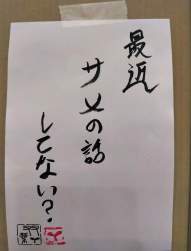 最近
サメの話
してない?